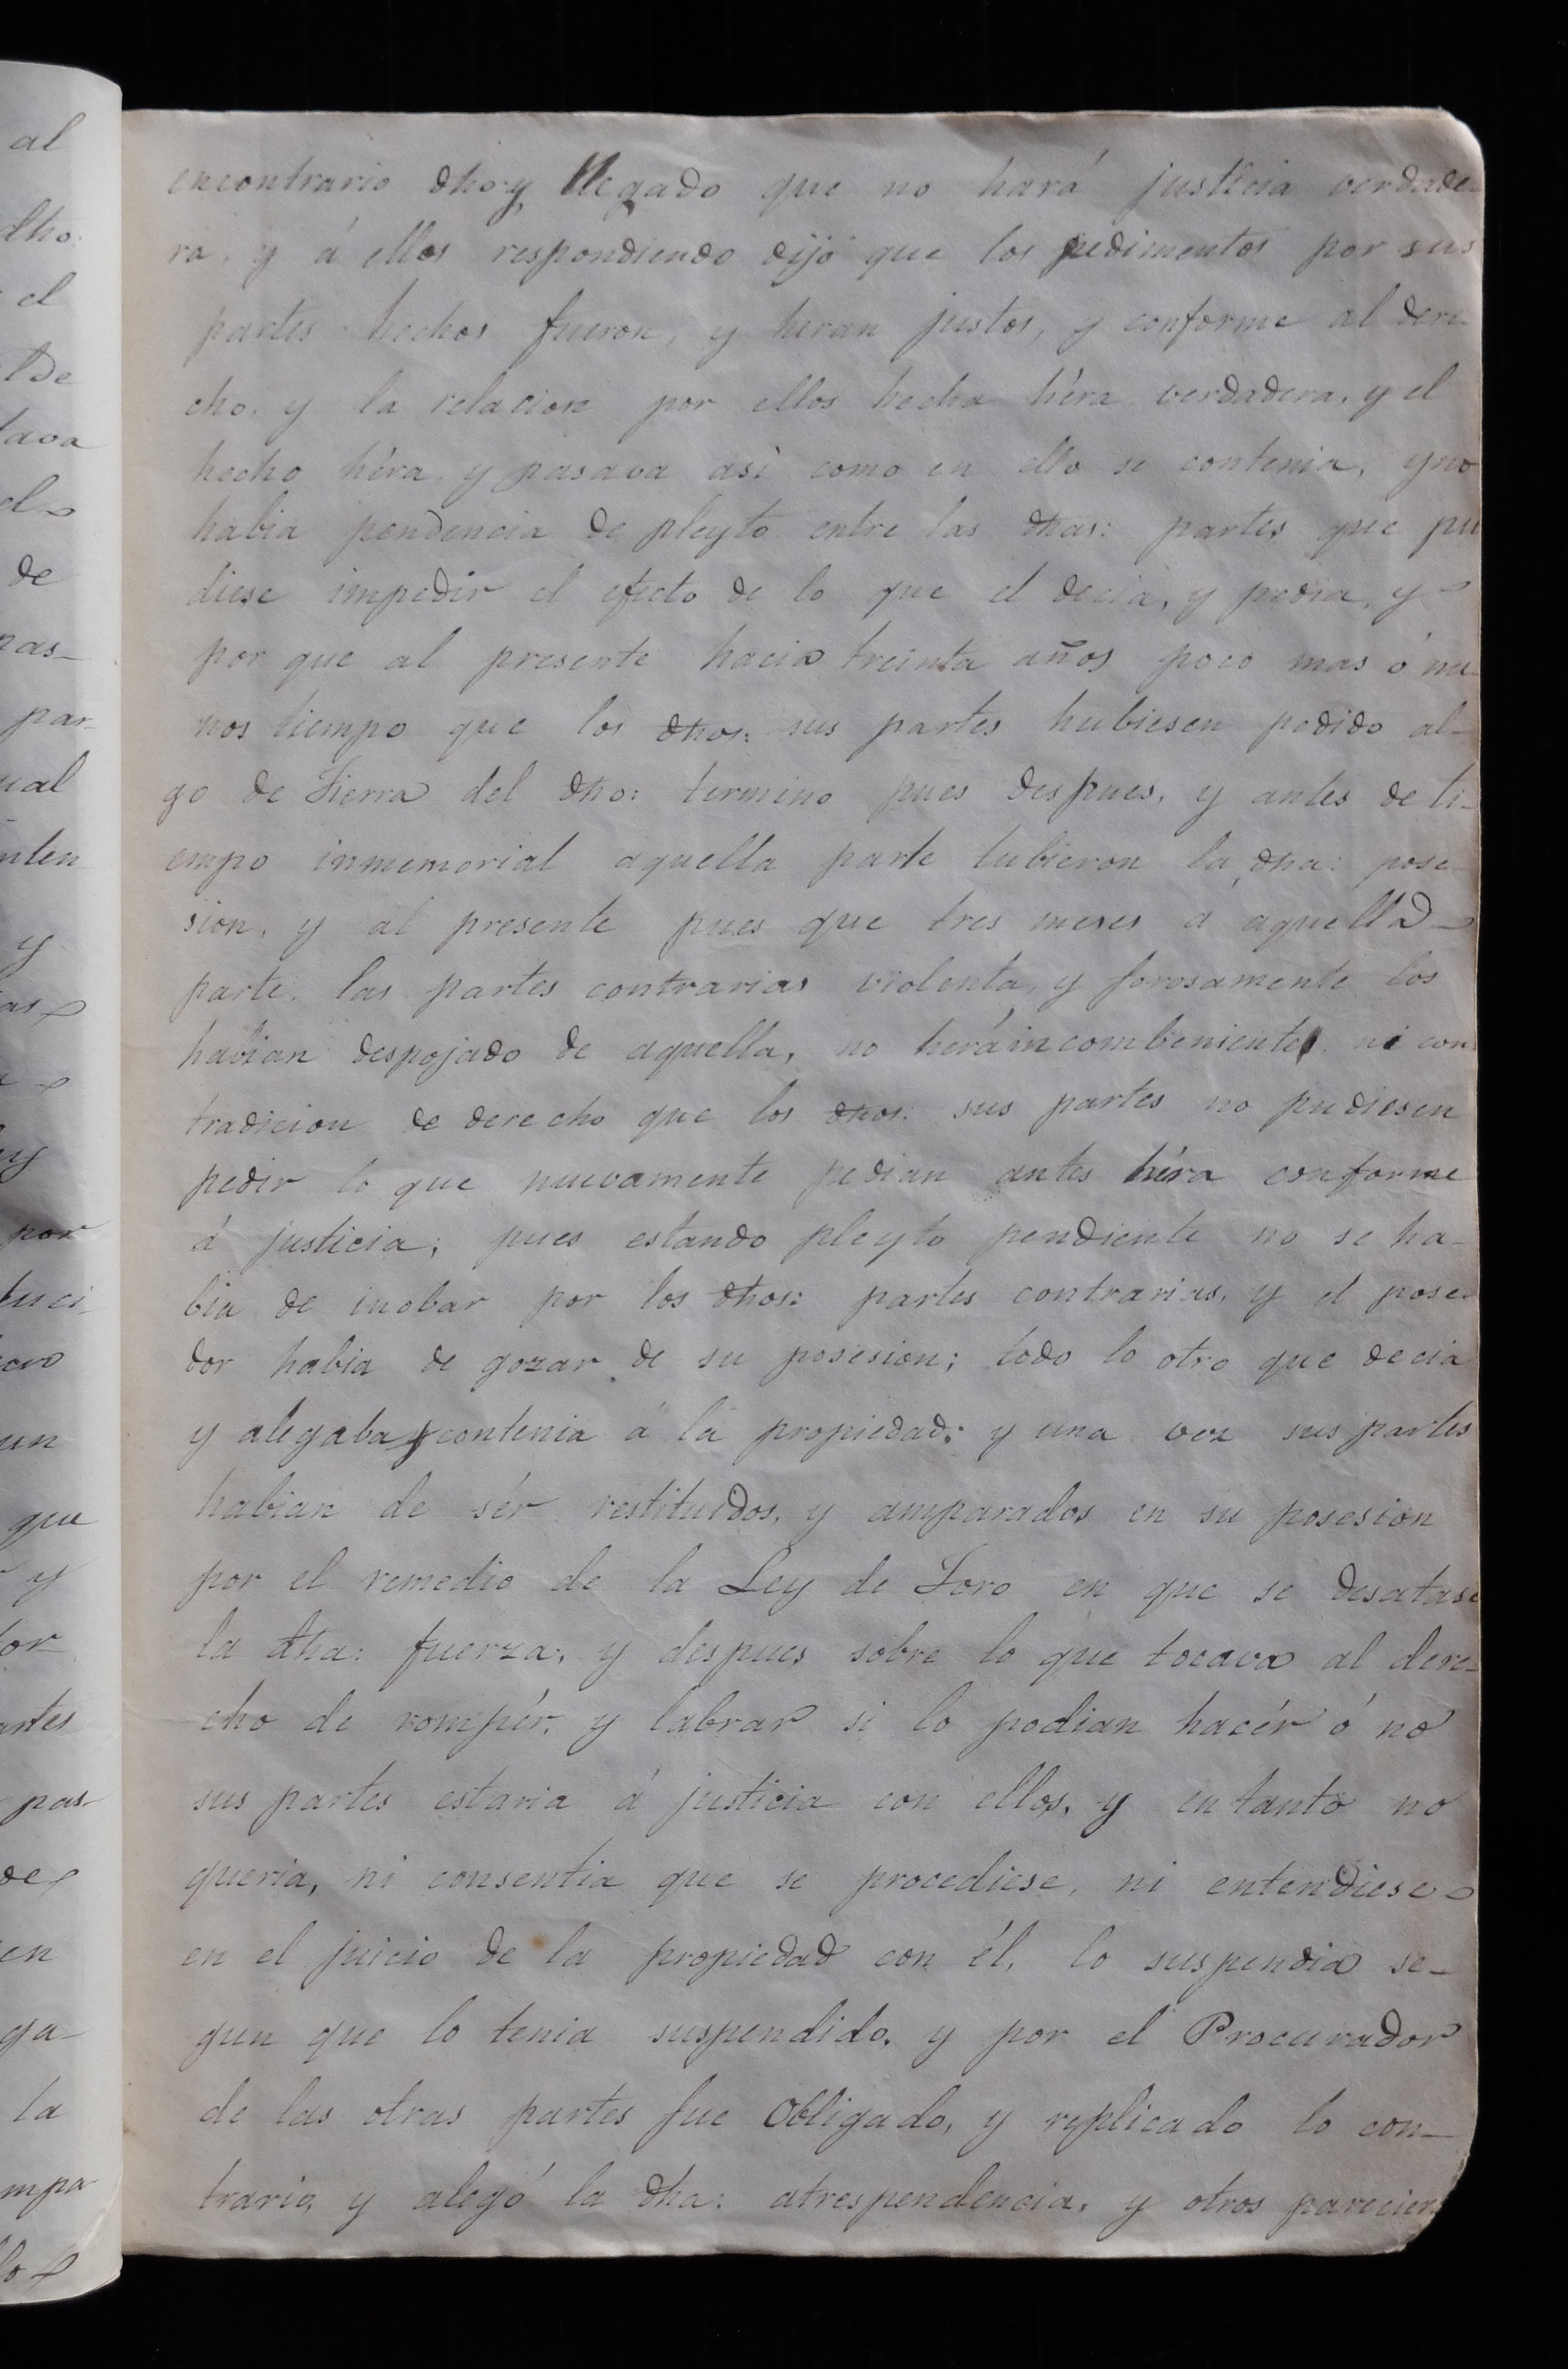 al
dho:
el
lde
tava
el
de
nas-
par-
ual
nten
y
as
y
por
tuci
un
que
y
or
artes
pas-
de
en
ga-
la
mpa
lo
encontrario dho: y llegado que no hará justicia verdade-
ra, y á ellos respondiendo dijo que los pedimentos por sus
partes hechos fueron, y heran justos, y conforme al dere-
cho, y la relacion por ellos hecha héra verdadera, y el
hecho héra, y pasava así como en ello se contenia, y no
habia pendencia de pleyto entre las dhas: partes que pu
diese impedir el efecto de lo que el decia, y pedia, y
por que al presente hacia treinta años poco mas ó me-
nos tiempo que los dhos: sus partes hubiesen pedido al-
go de Tierra del dho: termino pues despues, y antes de ti-
empo inmemorial aquella parte tubieron la dha: pose-
sion, y al presente pues que tres meses á aquella
parte, las partes contrarias violenta, y forosamente los
habian despojado de aquella, no herá incombeniente, ni con
tradicion de derecho que los dhos: sus partes no pudiesen
pedir lo que nuevamente pedian antes héra conforme
á justicia; pues estando pleyto pendiente no se ha-
bia de inobar por los dhos: partes contrarias, y el pose-
dor habia de gozar de su posesion; todo lo otro que decia
y alegaba y contenia á la propiedad; y una vez sus partes
habian de sér restituidos, y amparados en su posesion
por el remedio de la Ley de Toro en que se desatase
la dha: fuerza, y despues sobre lo que tocava al dere-
cho de rompér, y labrar si lo podian hacér ó no
sus partes estaria á justicia con ellos, y en tanto no
queria, ni consentia que se procediese, ni entendiese
en el juicio de la propiedad con él, lo suspendia se-
gun que lo tenia suspendido, y por el Procurador
de las otras partes fue Obligado, y replicado lo con-
trario, y alegó la dha: atrespendencia, y otros parecier